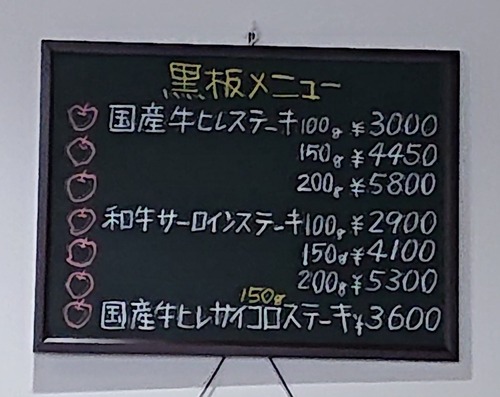 黒板メニュー
国産牛ヒレステーキ100g ¥3000
150g ¥4450
200g ¥5800
和牛サーロインステーキ100g ¥2900
150g ¥4100
200g ¥5300
150g
国産牛ヒレサイコロステーキ¥3600